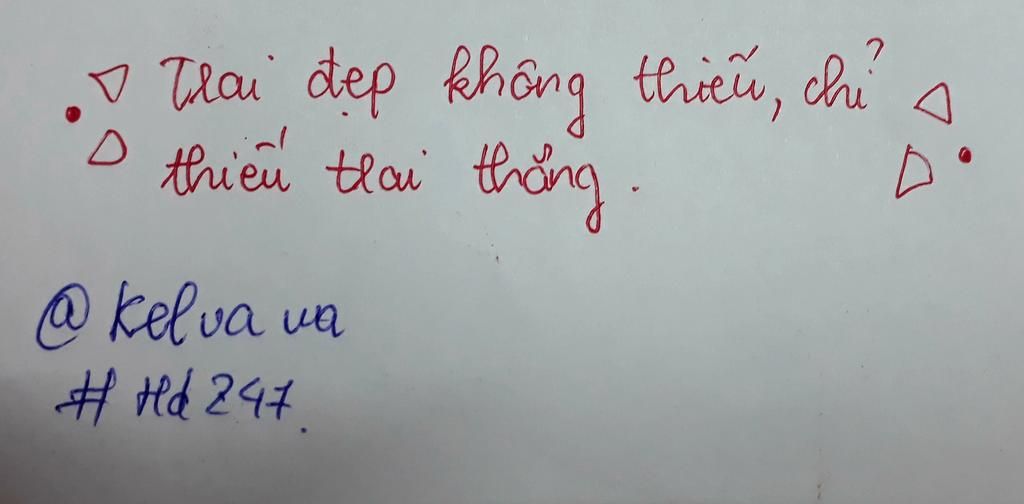 Trai đẹp không thiếu, chỉ
thiếu trai thẳng.
@Kelvava
#Hd247.